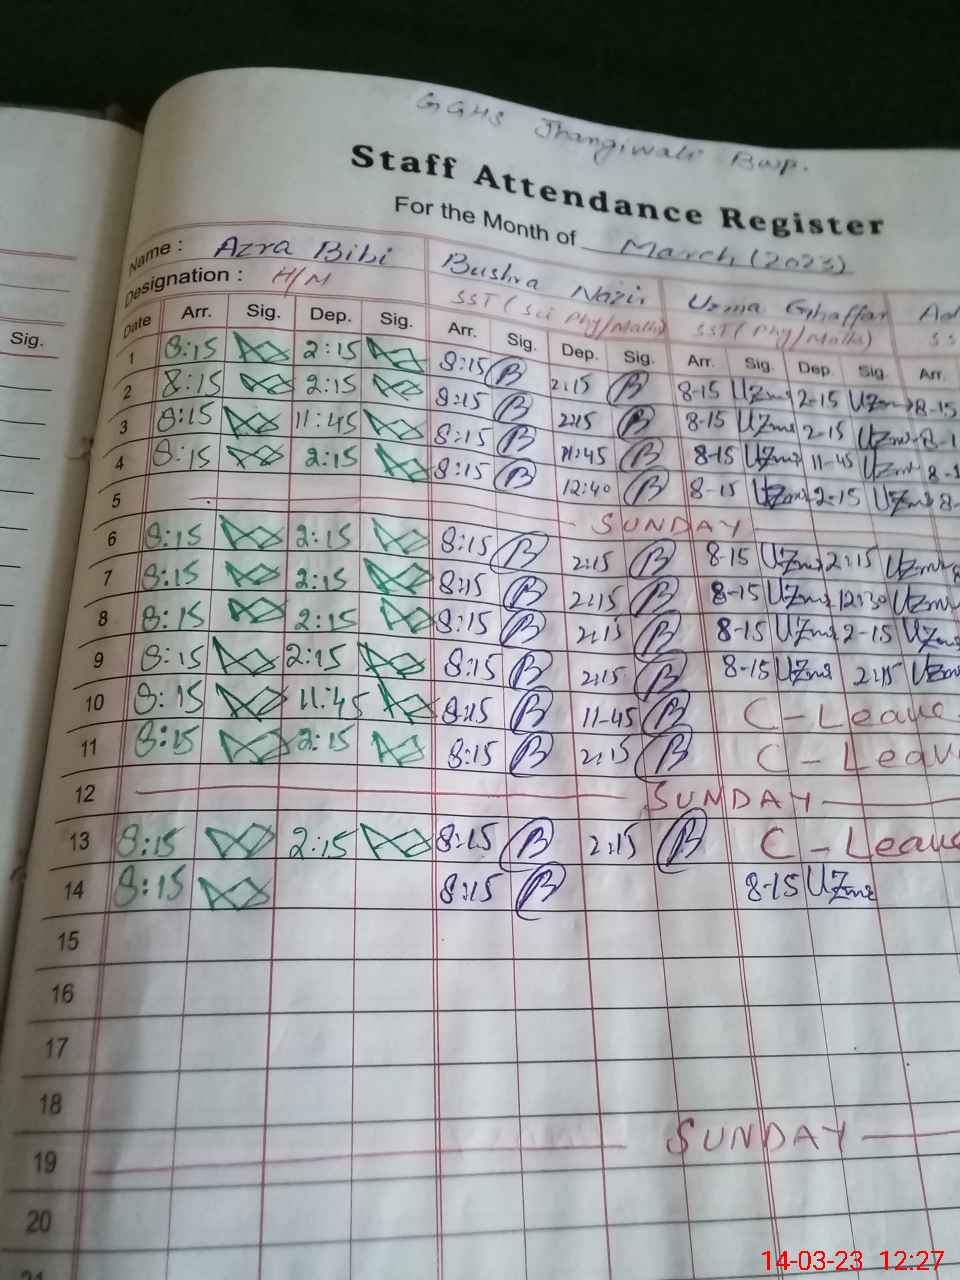 GGHS Jhangiwali Bwp.
Staff Attendance Register
For the Month of March (2023)
Name : Azra Bibi Bushra Nazir Uzma Ghaffar
Designation : H/M SST (Sci Phy/Math) SST (Phy/Math)
Sig. Date Arr. Sig. Dep. Sig. Arr. Sig. Dep. Sig. Arr. Sig. Dep. Sig. Arr.
1 8:15 2:15 8:15 B 2:15 B 8-15 Uzma 2-15 Uzma 8-15
2 8:15 2:15 8:15 B 2:15 B 8-15 Uzma 2-15 Uzma
3 8:15 11:45 8:15 B 11:45 B 8-15 Uzma 11-45 Uzma
4 8:15 2:15 8:15 B 12:40 B 8-15 Uzma 2:15 Uzma
5 SUNDAY
6 8:15 2:15 8:15 B 2:15 B 8-15 Uzma 2:15 Uzma
7 8:15 2:15 8:15 B 2:15 B 8-15 Uzma 12:30 Uzma
8 8:15 2:15 8:15 B 2:15 B 8-15 Uzma 2-15 Uzma
9 8:15 2:15 8:15 B 2:15 B 8-15 Uzma 2:15 Uzma
10 8:15 11:45 8:15 B 11-45 B C-Leave
11 8:15 2:15 8:15 B 2:15 B C-Leave
12 SUNDAY
13 8:15 2:15 8:15 B 2:15 B C-Leave
14 8:15 8:15 B 8-15 Uzma
15
16
17
18
19 SUNDAY
20
14-03-23 12:27